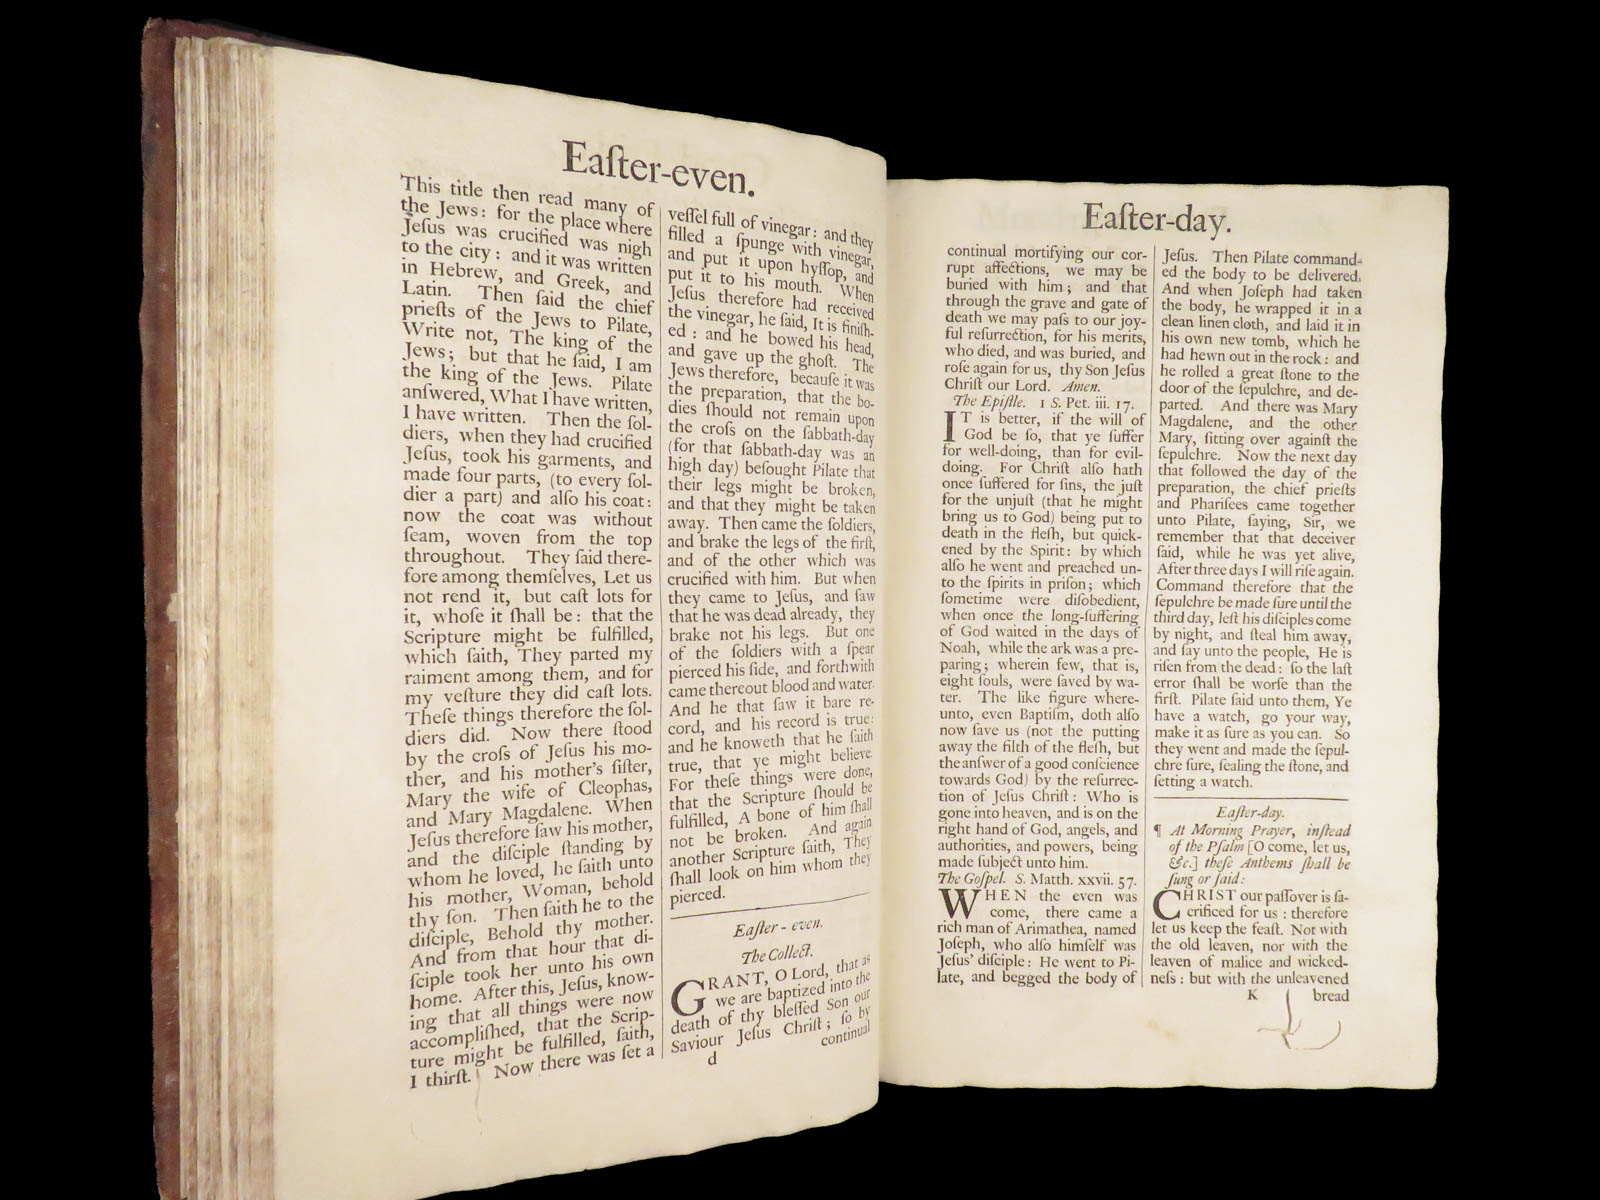 Eaſter-even.
This title then read many of
the Jews: for the place where
Jeſus was crucified was nigh
to the city: and it was written
in Hebrew, and Greek, and
Latin. Then ſaid the chief
prieſts of the Jews to Pilate,
Write not, The king of the
Jews; but that he ſaid, I am
the king of the Jews. Pilate
anſwered, What I have written,
I have written. Then the ſol-
diers, when they had crucified
Jeſus, took his garments, and
made four parts, (to every ſol-
dier a part) and alſo his coat:
now the coat was without
ſeam, woven from the top
throughout. They ſaid there-
fore among themſelves, Let us
not rend it, but caſt lots for
it, whoſe it ſhall be: that the
Scripture might be fulfilled,
which ſaith, They parted my
raiment among them, and for
my veſture they did caſt lots.
Theſe things therefore the ſol-
diers did. Now there ſtood
by the croſs of Jeſus his mo-
ther, and his mother's ſiſter,
Mary the wife of Cleophas,
and Mary Magdalene. When
Jeſus therefore ſaw his mother,
and the diſciple ſtanding by
whom he loved, he ſaith unto
his mother, Woman, behold
thy ſon. Then ſaith he to the
diſciple, Behold thy mother.
And from that hour that di-
ſciple took her unto his own
home. After this, Jeſus, know-
ing that all things were now
accompliſhed, that the Scrip-
ture might be fulfilled, ſaith,
I thirſt. Now there was ſet a
veſſel full of vinegar: and they
filled a ſpunge with vinegar,
and put it upon hyſſop, and
put it to his mouth. When
Jeſus therefore had received
the vinegar, he ſaid, It is finiſh-
ed: and he bowed his head,
and gave up the ghoſt. The
Jews therefore, becauſe it was
the preparation, that the bo-
dies ſhould not remain upon
the croſs on the ſabbath-day
(for that ſabbath-day was an
high day) beſought Pilate that
their legs might be broken,
and that they might be taken
away. Then came the ſoldiers,
and brake the legs of the firſt,
and of the other which was
crucified with him. But when
they came to Jeſus, and ſaw
that he was dead already, they
brake not his legs. But one
of the ſoldiers with a ſpear
pierced his ſide, and forthwith
came thereout blood and water.
And he that ſaw it bare re-
cord, and his record is true:
and he knoweth that he ſaith
true, that ye might believe.
For theſe things were done,
that the Scripture ſhould be
fulfilled, A bone of him ſhall
not be broken. And again
another Scripture ſaith, They
ſhall look on him whom they
pierced.
Eaſter-even.
The Collect.
GRANT, O Lord, that as
we are baptized into the
death of thy bleſſed Son our
Saviour Jeſus Chriſt; ſo by
d continual
Eaſter-day.
continual mortifying our cor-
rupt affections, we may be
buried with him; and that
through the grave and gate of
death we may paſs to our joy-
ful reſurrection, for his merits,
who died, and was buried, and
roſe again for us, thy Son Jeſus
Chriſt our Lord. Amen.
The Epiſtle. 1 S. Pet. iii. 17.
IT is better, if the will of
God be ſo, that ye ſuffer
for well-doing, than for evil-
doing. For Chriſt alſo hath
once ſuffered for ſins, the juſt
for the unjuſt (that he might
bring us to God) being put to
death in the fleſh, but quick-
ened by the Spirit: by which
alſo he went and preached un-
to the ſpirits in priſon; which
ſometime were diſobedient,
when once the long-ſuffering
of God waited in the days of
Noah, while the ark was a pre-
paring; wherein few, that is,
eight ſouls, were ſaved by wa-
ter. The like figure where-
unto, even Baptiſm, doth alſo
now ſave us (not the putting
away the filth of the fleſh, but
the anſwer of a good conſcience
towards God) by the reſurrec-
tion of Jeſus Chriſt: Who is
gone into heaven, and is on the
right hand of God, angels, and
authorities, and powers, being
made ſubject unto him.
The Goſpel. S. Matth. xxvii. 57.
WHEN the even was
come, there came a
rich man of Arimathea, named
Joſeph, who alſo himſelf was
Jeſus' diſciple: He went to Pi-
late, and begged the body of
Jeſus. Then Pilate command-
ed the body to be delivered.
And when Joſeph had taken
the body, he wrapped it in a
clean linen cloth, and laid it in
his own new tomb, which he
had hewn out in the rock: and
he rolled a great ſtone to the
door of the ſepulchre, and de-
parted. And there was Mary
Magdalene, and the other
Mary, ſitting over againſt the
ſepulchre. Now the next day
that followed the day of the
preparation, the chief prieſts
and Phariſees came together
unto Pilate, ſaying, Sir, we
remember that that deceiver
ſaid, while he was yet alive,
After three days I will riſe again.
Command therefore that the
ſepulchre be made ſure until the
third day, leſt his diſciples come
by night, and ſteal him away,
and ſay unto the people, He is
riſen from the dead: ſo the laſt
error ſhall be worſe than the
firſt. Pilate ſaid unto them, Ye
have a watch, go your way,
make it as ſure as you can. So
they went and made the ſepul-
chre ſure, ſealing the ſtone, and
ſetting a watch.
Eaſter-day.
¶ At Morning Prayer, inſtead
of the Pſalm [O come, let us,
&c.] theſe Anthems ſhall be
ſung or ſaid:
CHRIST our paſſover is ſa-
crificed for us: therefore
let us keep the feaſt. Not with
the old leaven, nor with the
leaven of malice and wicked-
neſs: but with the unleavened
K bread